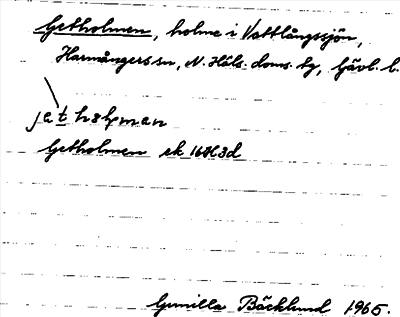 Getholmen, holme i Vattlångssjön,
Harmångers sn, N. Häls. doms. hg, Gävl. l.
Getholmen ek 16H3d
Gunilla Bäcklund 1965.